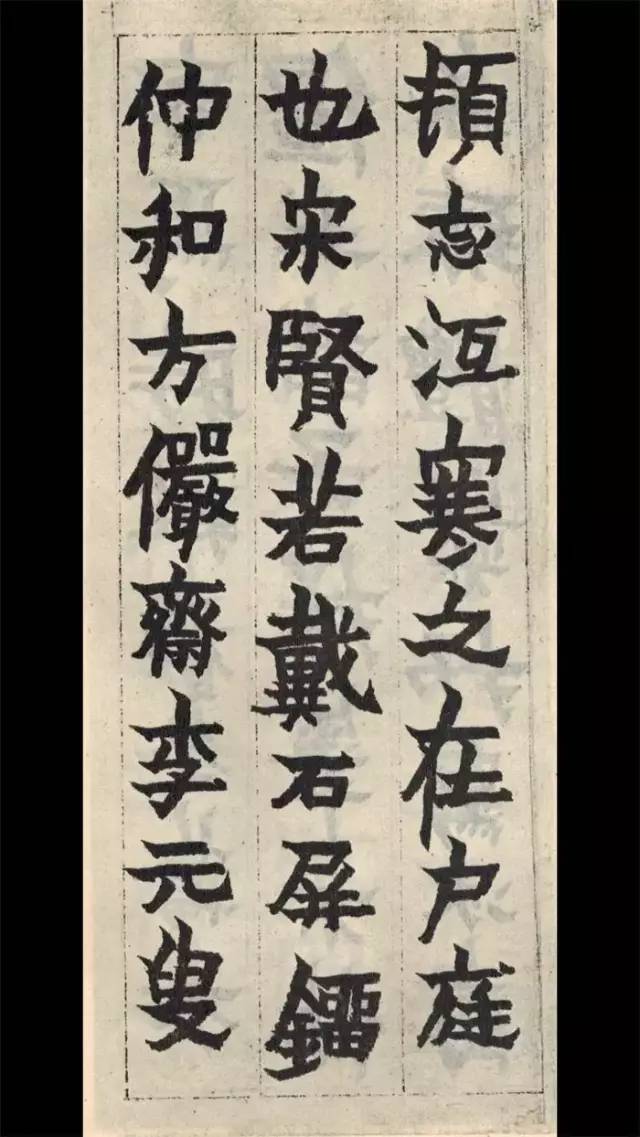 頓忘沍寒之在户庭
也宋賢若戴石屏鎦
仲和方儼齋李元叟